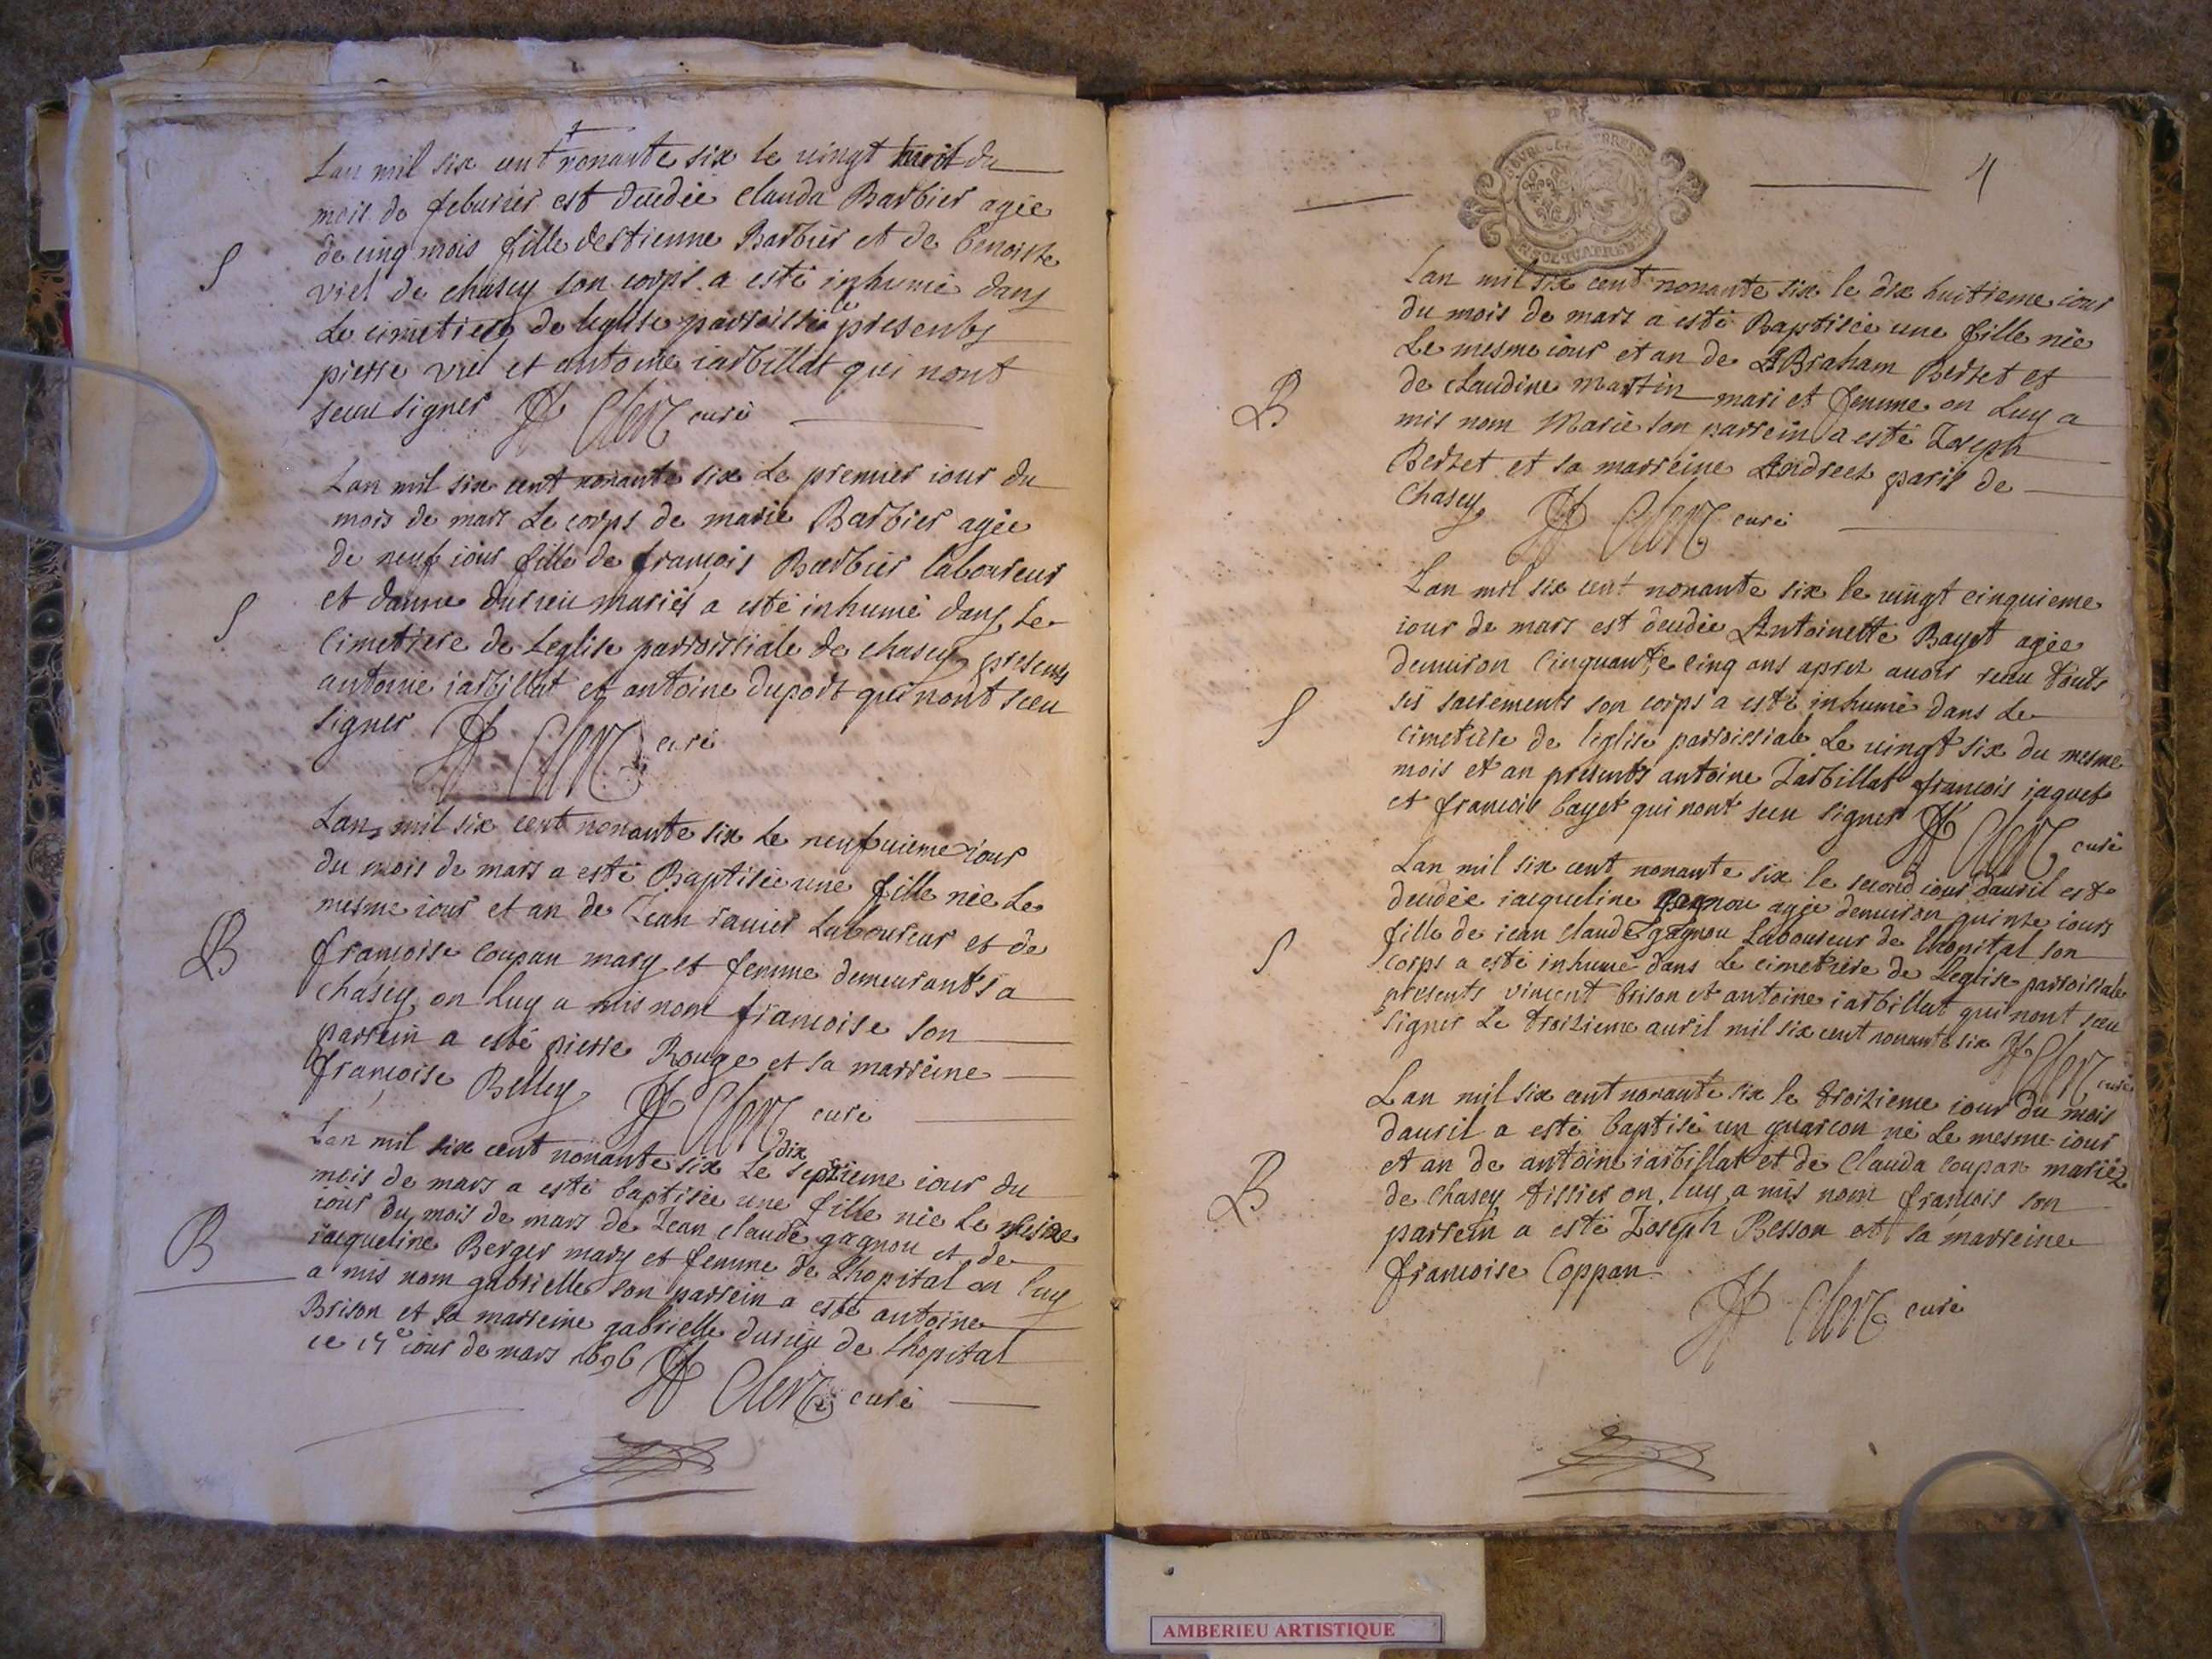 Lan mil six cent nonante six le uingt huit du
mois de feburier est decedée clauda Barbier agée
de cinq mois fille destienne Barbier et de benoiste
S
viel de chasey son corps a esté inhumé dans
Le cimetiere de leglise parroissiale presents
pierre viel et antoine iarbillat qui nont
sceu signer Clerc curé
Lan mil six cent nonante six Le premier iour du
mois de mars Le corps de marie Barbier agée
de neuf iour fille de françois Barbier laboureur
S
et danne durieu mariés a esté inhumé dans Le
cimetiere de Leglise parroissiale de chasey presents
antoine iarbillat et antoine duport qui nont sceu
signer Clerc curé
Lan mil six cent nonante six Le neufuieme iour
du mois de mars a esté Baptisée une fille née Le
mesme iour et an de Jean rauier Laboureur et de
B
françoise coupan mary et femme demeurants a
chasey on luy a mis nom francoise son
parrein a esté pierre Rouge et sa marreine
françoise Belley Clerc curé
Lan mil six cent nonante six Le dix septieme iour du
mois de mars a esté baptisée une fille née Le mesme
iour du mois de mars de Jean claude gagnou et de
B
iacqueline Berger mary et femme de Lhopital on luy
a mis nom gabrielle son parrein a esté antoine
Brison et sa marreine gabrielle durieu de Lhopital
ce 17e iour de mars 1696 Clerc curé
4
Lan mil six cent nonante six le dix huitieme iour
du mois de mars a esté Baptisée une fille née
Le mesme iour et an de ABraham Berset et
B
de claudine martin mari et femme on Luy a
mis nom Marie son parrein a esté Joseph
Berset et sa marreine Andreez paris de
chasey Clerc curé
Lan mil six cent nonante six le uingt cinquieme
iour de mars est decedée Antoinette Bayet agée
denuiron cinquante cinq ans aprez auoir receu touts
S
ses sacrements son corps a esté inhumé dans Le
cimetiere de leglise parroissiale Le uingt six du mesme
mois et an presents antoine Jarbillat francois iaquet
et francois bayet qui nont sceu signer Clerc curé
Lan mil six cent nonante six le second iour dauril est
decedée iacqueline gagnou agée denuiron quinze iours
fille de iean claude gagnou Laboureur de lhopital son
S
corps a esté inhumé dans Le cimetiere de Leglise parroissiale
presents vincent brison et antoine iarbillat qui nont sceu
signer Le troizieme auril mil six cent nonante six Clerc curé
Lan mil six cent nonante six le troizieme iour du mois
dauril a esté baptisé un guarcon né Le mesme iour
et an de antoine iarbillat et de Clauda coupan mariéz
B
de chasey tissier on luy a mis nom françois son
parrein a esté Joseph Besson et sa marreine
francoise Coppan
Clerc curé
AMBERIEU ARTISTIQUE